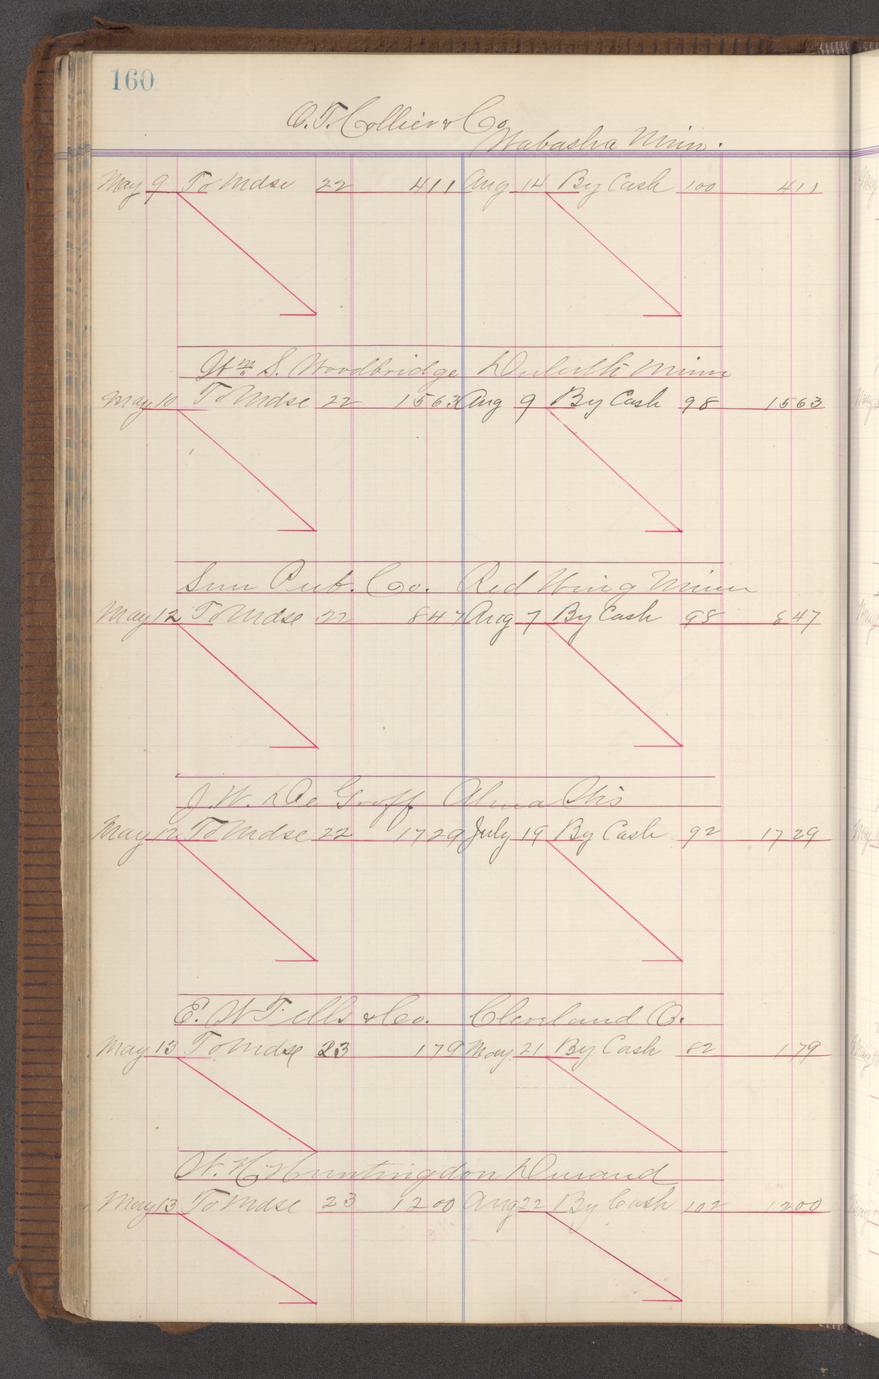 160
O. T. Collier & Co
Wabasha Minn.
May 9 To Mdse 22 411 Aug 14 By Cash 100 411
Wm S. Woodbridge Duluth Minn
May 10 To Mdse 22 1563 Aug 9 By Cash 98 1563
Sun Pub. Co. Red Wing Minn
May 12 To Mdse 22 847 Aug 7 By Cash 98 847
J. W. De Groff Alma Wis
May 12 To Mdse 22 1729 July 19 By Cash 92 1729
E. W. & Co. Cleveland O.
May 13 To Mdse 23 179 May 21 By Cash 82 179
W. H. Huntingdon Durand
May 13 To Mdse 23 1200 Aug 22 By Cash 102 1200